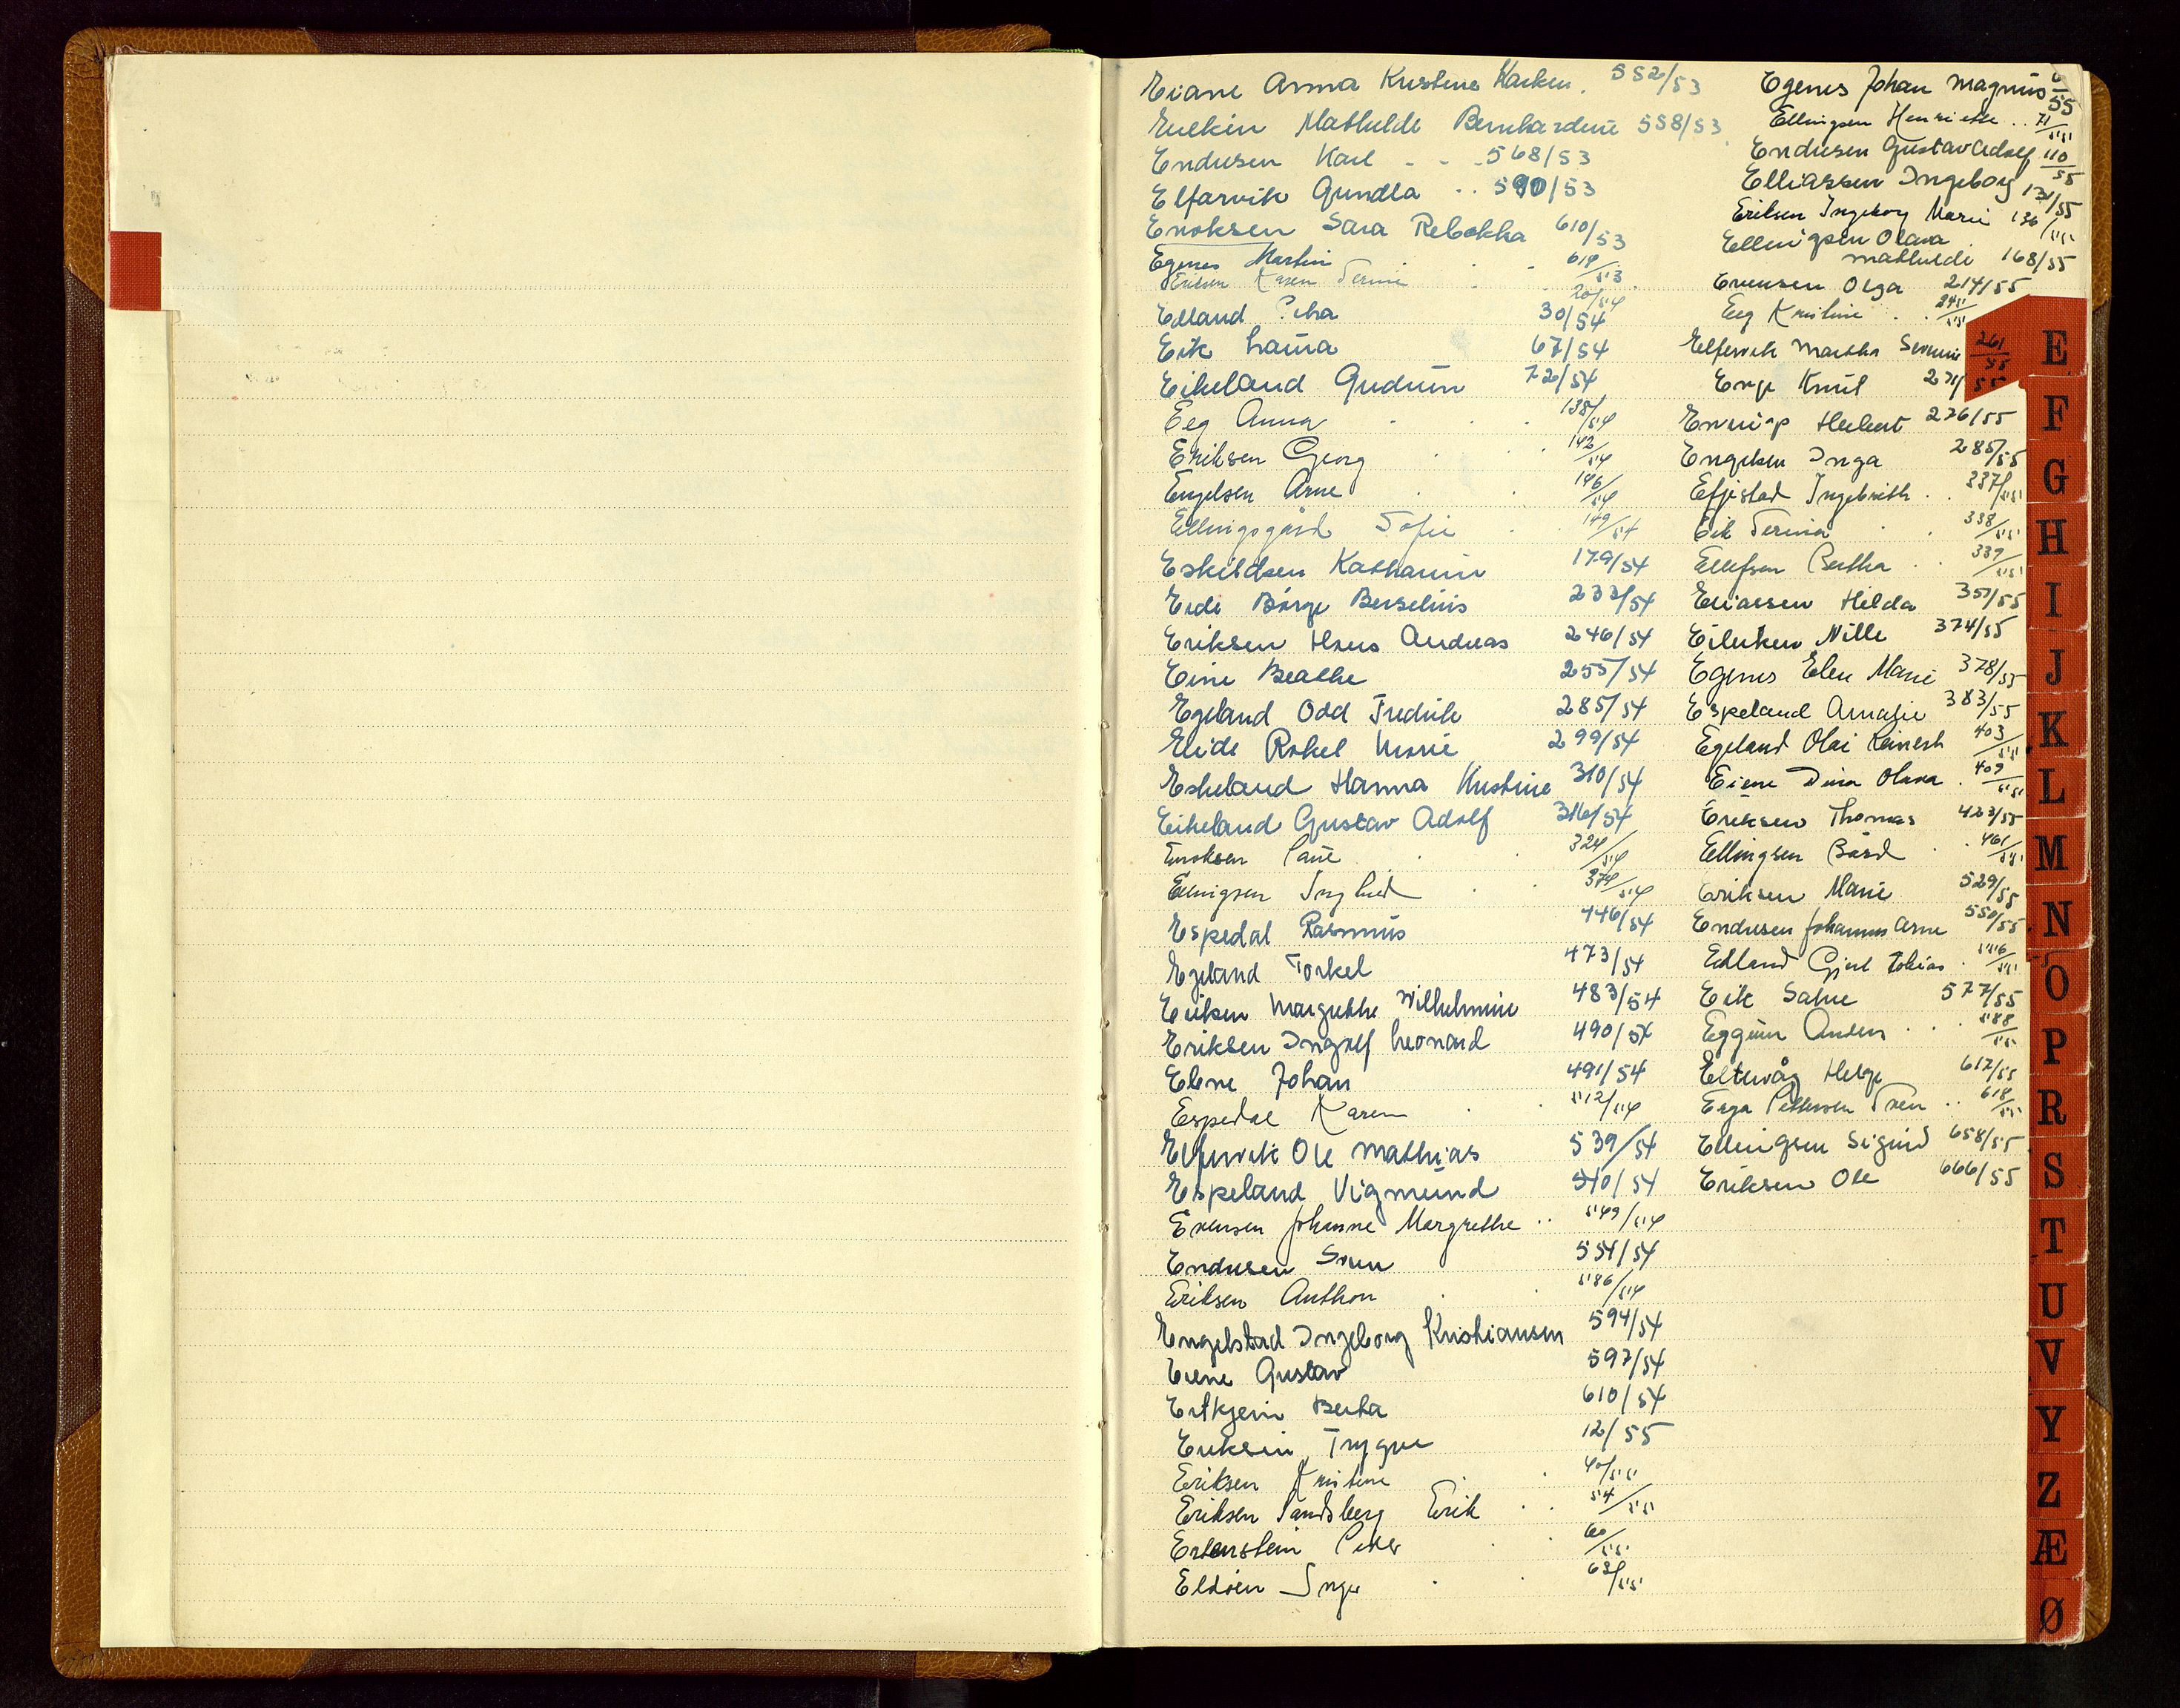 Eiane Anna Kristine Karken. 552/53
Mathilde Bernhardine 558/53
Endresen Karl - - 568/53
Elfarvik Gundla .. 590/53
Enoksen Sara Rebekka 610/53
Egenes Martin 614/53
Eriksen Karen Serine 20/54
Edland 30/54
Eik Laura 67/54
Eikeland Gudrun 72/54
Eeg Anna 138/54
Eriksen Georg 142/54
Engelsen Arne 146/54
Ellingsgård Sofie 149/54
Eskildsen Kathanine 179/54
Eide Børge Berselius 233/54
Eriksen Hans Andreas 246/54
Eine Beathe 255/54
Egeland Odd Fredrik 285/54
Eide Rakel Marie 299/54
Eskeland Hanna Kristine 310/54
Eikeland Gustav Adolf 316/54
Enoksen 324/54
Ellingsen 374/54
Espedal Rasmus 446/54
Egeland Torkel 473/54
Eriksen Margrethe Wilhelmine 483/54
Eriksen Ingolf Leonard 490/54
Elene Johan 491/54
Espedal Karen 512/54
Elfervik Ole Mathias 539/54
Espeland Vigmund 540/54
Evensen Johanne Margrethe .. 549/54
Endresen Sven 554/54
Eriksen Anthon 586/54
Engelstad Ingeborg Kristiansen 594/54
Eiene Gustav 597/54
Berta 610/54
Eriksen Trygve 12/55
Eriksen Kristine 40/55
Eriksen Sandsberg Erik 54/55
Ertenstein Peder 60/55
Eldøen Inge 63/55
Egenes Johan Magnus /55
Ellingsen Henriette .. 71/55
Endresen Gustav Adolf 110/55
Elliassen Ingeborg 131/55
Eriksen Ingeborg Marie 136/55
Ellingsen Olava
Mathilde 168/55
Evensen Olga 214/55
Eeg Kristine 245/55
Elfervik Martha Severine 261/55
Enge Knut 271/55
Herbert 276/55
Engelsen Inga 285/55
Efjestad Ingebrigt .. 337/55
Eik Serina 338/55
Ellefsen Bertha 339/55
Eliassen Hilda 357/55
Nille 374/55
Egenes Elen Marie 378/55
Espeland Amalie 383/55
Egeland Olai Reinert 403/55
Eiene Dina Olava 409/55
Eriksen Thomas 423/55
Ellingsen Bård 461/55
Eriksen Marie 529/55
Endresen Johannes Arne 550/55
Edland Gjert Tobias 556/55
Eik Salve 577/55
Eggum Anders 588/55
Eltervåg Helge 617/55
Erga Pettersen Sven .. 618/55
Ellingsen Sigurd 658/55
Eriksen Ole 666/55
E
F
G
H
I
J
K
L
M
N
O
P
R
S
T
U
V
Y
Z
Æ
Ø